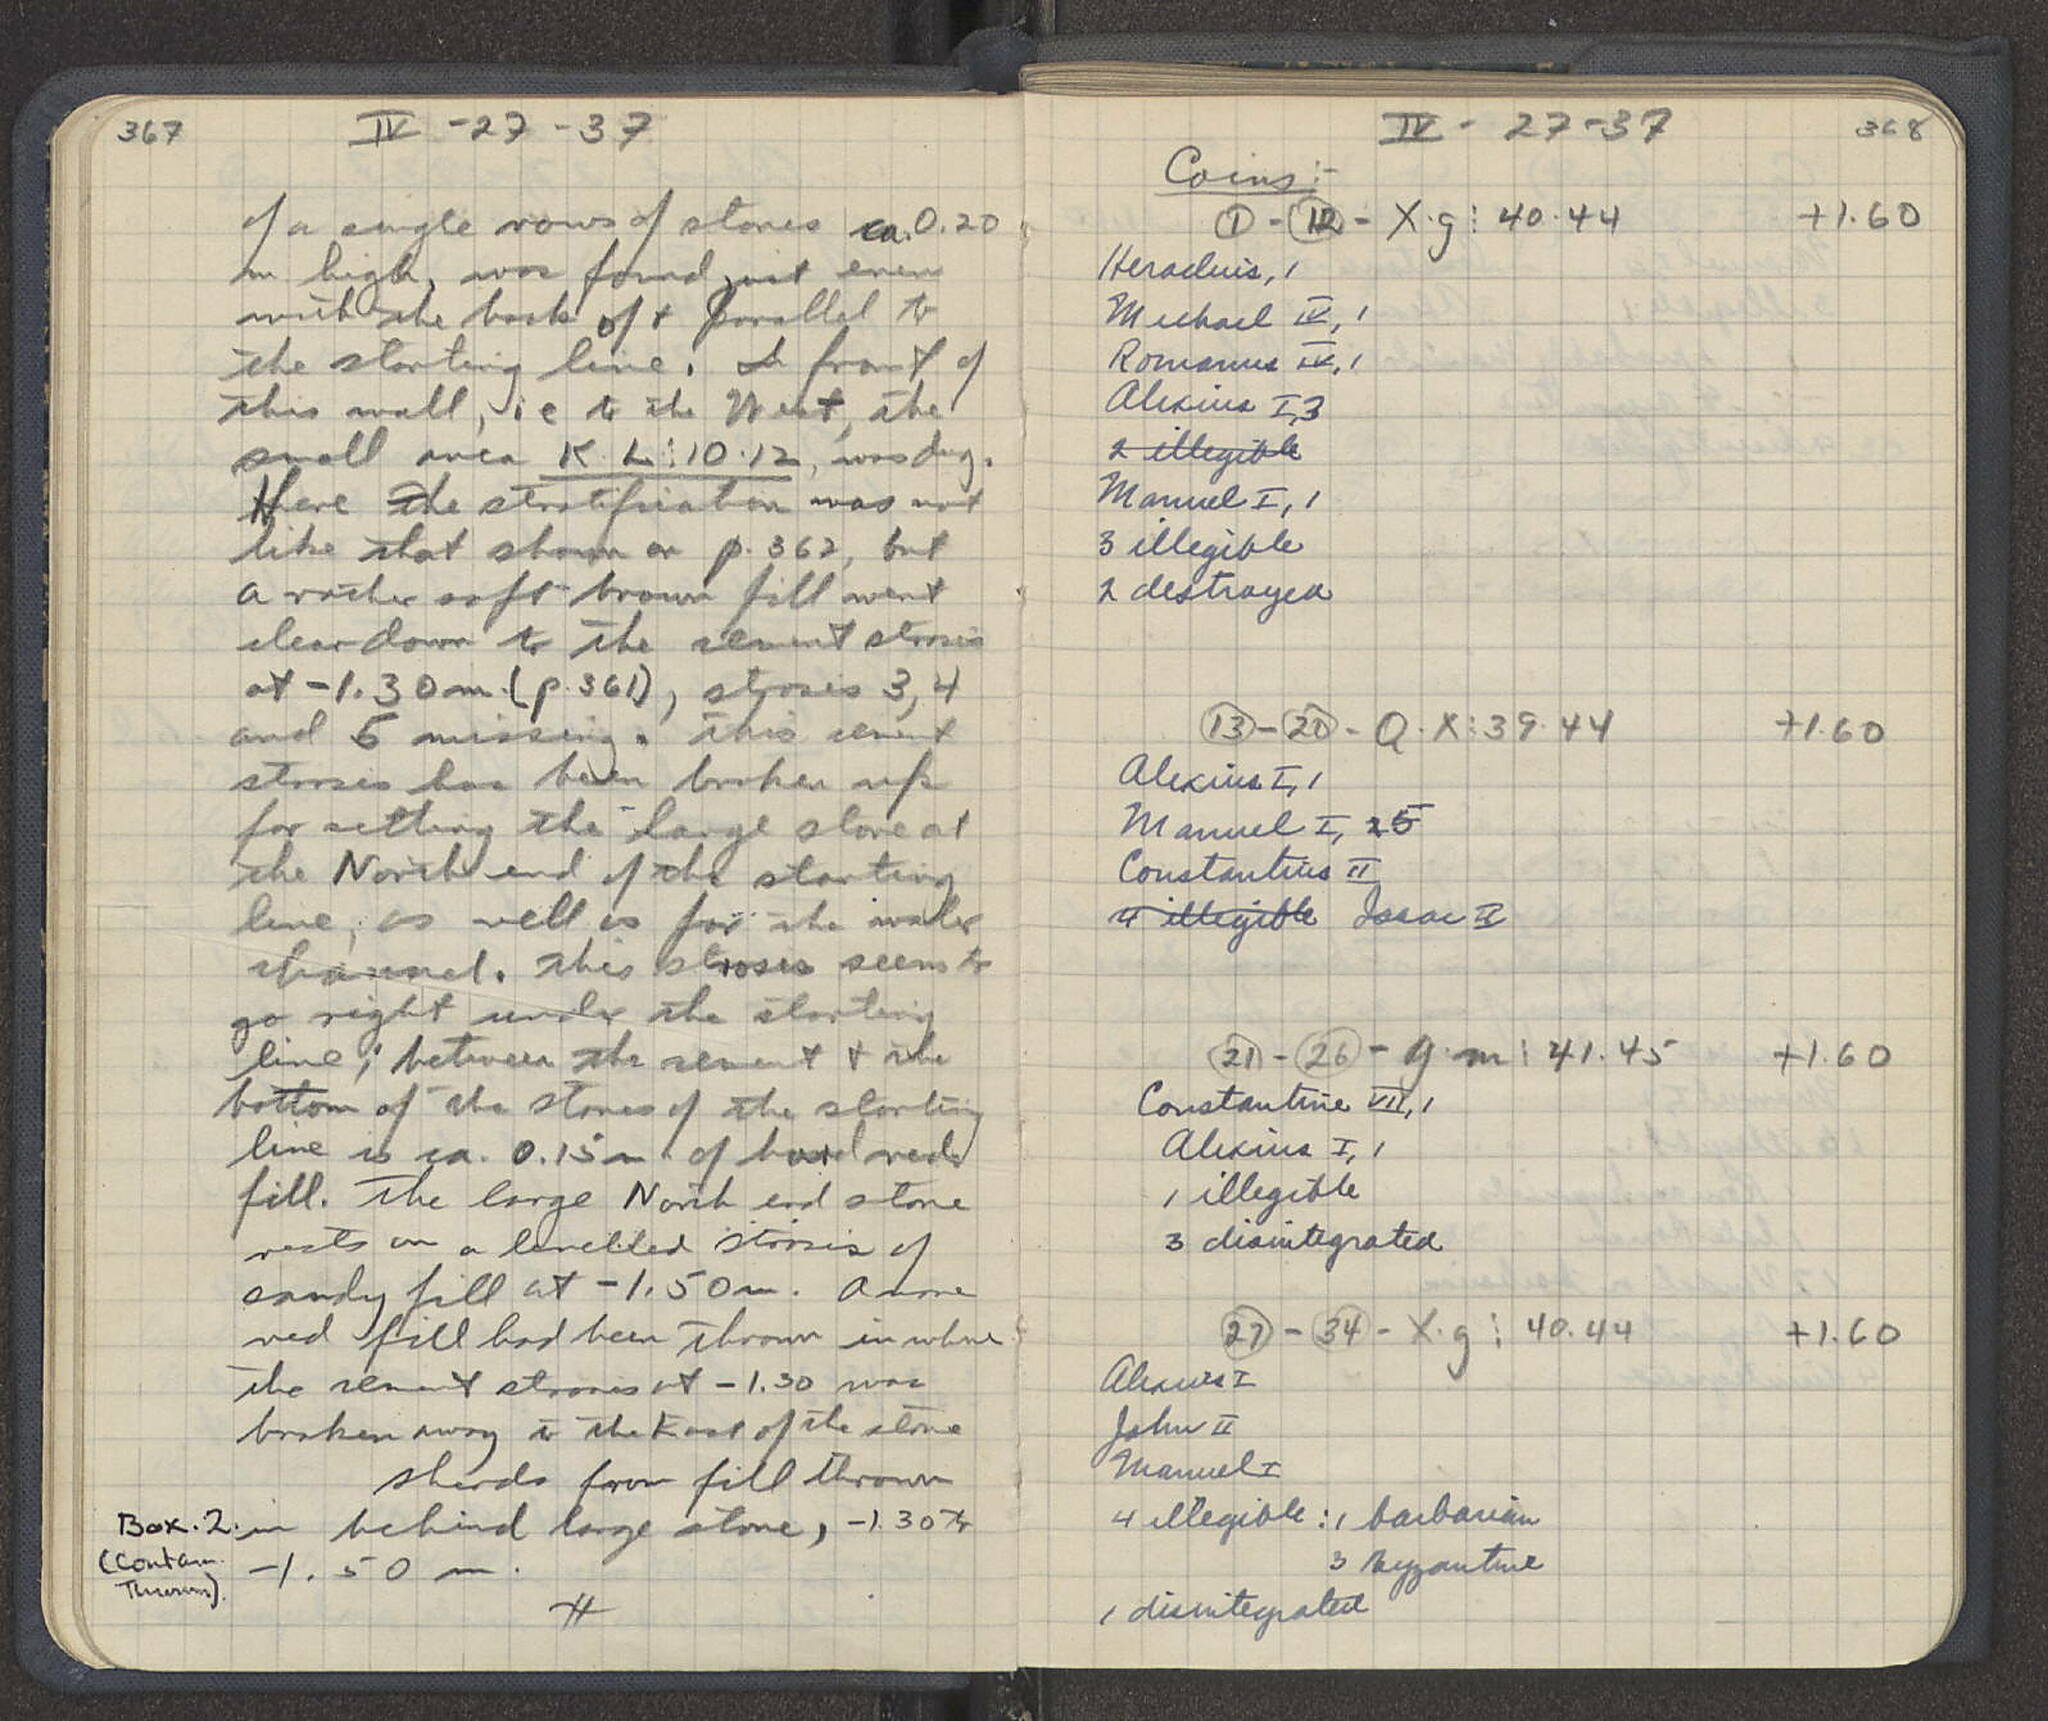 367
IV - 27 - 37
of a single rows of stones ca. 0.20
m high, was found just even
with the back of + parallel to
the starting line. In front of
this wall, ie to the West, the
small area K·L:10·12, was dug.
Here the stratification was not
like that shown on p. 362, but
a rather soft brown fill went
clear down to the cement stroses
at -1.30 m (p. 361), stroses 3, 4
and 5 missing. This cement
stroses has been broken up
for setting the large stone at
the North end of the starting
line, as well as for the water
channel. This stroses seems to
go right under the starting
line; between the cement + the
bottom of the stones of the starting
line is ca. 0.15 m of hard red
fill. The large North end stone
rests on a levelled stroses of
sandy fill at -1.50 m. A more
red fill had been thrown in where
the cement stroses at -1.30 was
broken away to the East of the stone
sherds from fill thrown
Box. 2. in behind large stone, -1.30 to
(Contam. -1.50 m.
Thrown).
#
IV - 27-37
368
Coins:-
1 - 12 - X·g: 40·44 +1.60
Heraclius, 1
Michael IV, 1
Romanus IV, 1
Alexius I, 3
2 illegible
Manuel I, 1
3 illegible
2 destroyed
13 - 20 - Q·X: 39·44 +1.60
Alexius I, 1
Manuel I, 25
Constantius II
4 illegible Isaac II
21 - 26 - g·m: 41·45 +1.60
Constantine VII, 1
Alexius I, 1
1 illegible
3 disintegrated
27 - 34 - X·g: 40·44 +1.60
Alexius I
John II
Manuel I
4 illegible: 1 barbarian
3 Byzantine
1 disintegrated